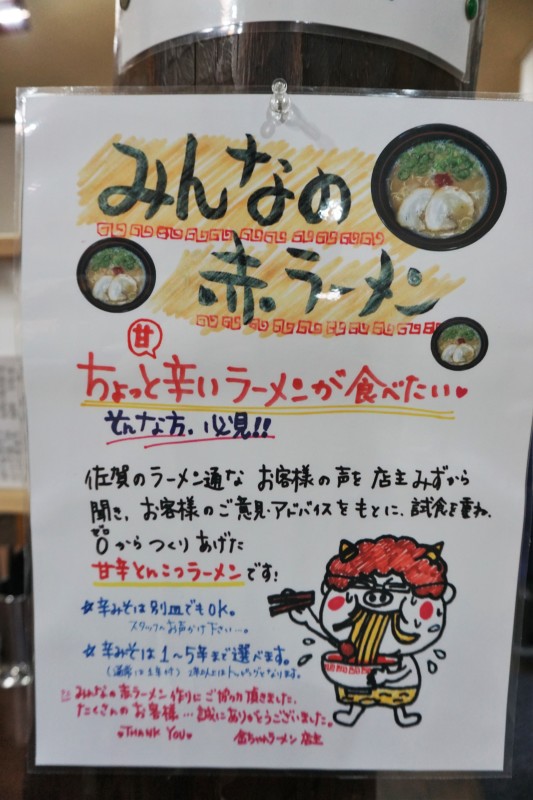 みんなの
赤ラーメン
甘
ちょっと辛いラーメンが食べたい♥
そんな方、必見!!
佐賀のラーメン通な お客様の声を 店主みずから
聞き、お客様のご意見・アドバイスをもとに、試食を重ね、
ゼロ
0からつくりあげた
甘辛とんこつラーメンです!
☆辛みそは別皿でもOK。
スタッフへお声かけ下さい…。
☆辛みそは1~5辛まで選べます。
みんなの赤ラーメン作りにご協力頂きました、
たくさんのお客様…誠にありがとうございました。
♥THANK YOU♥
金ちゃんラーメン 店主